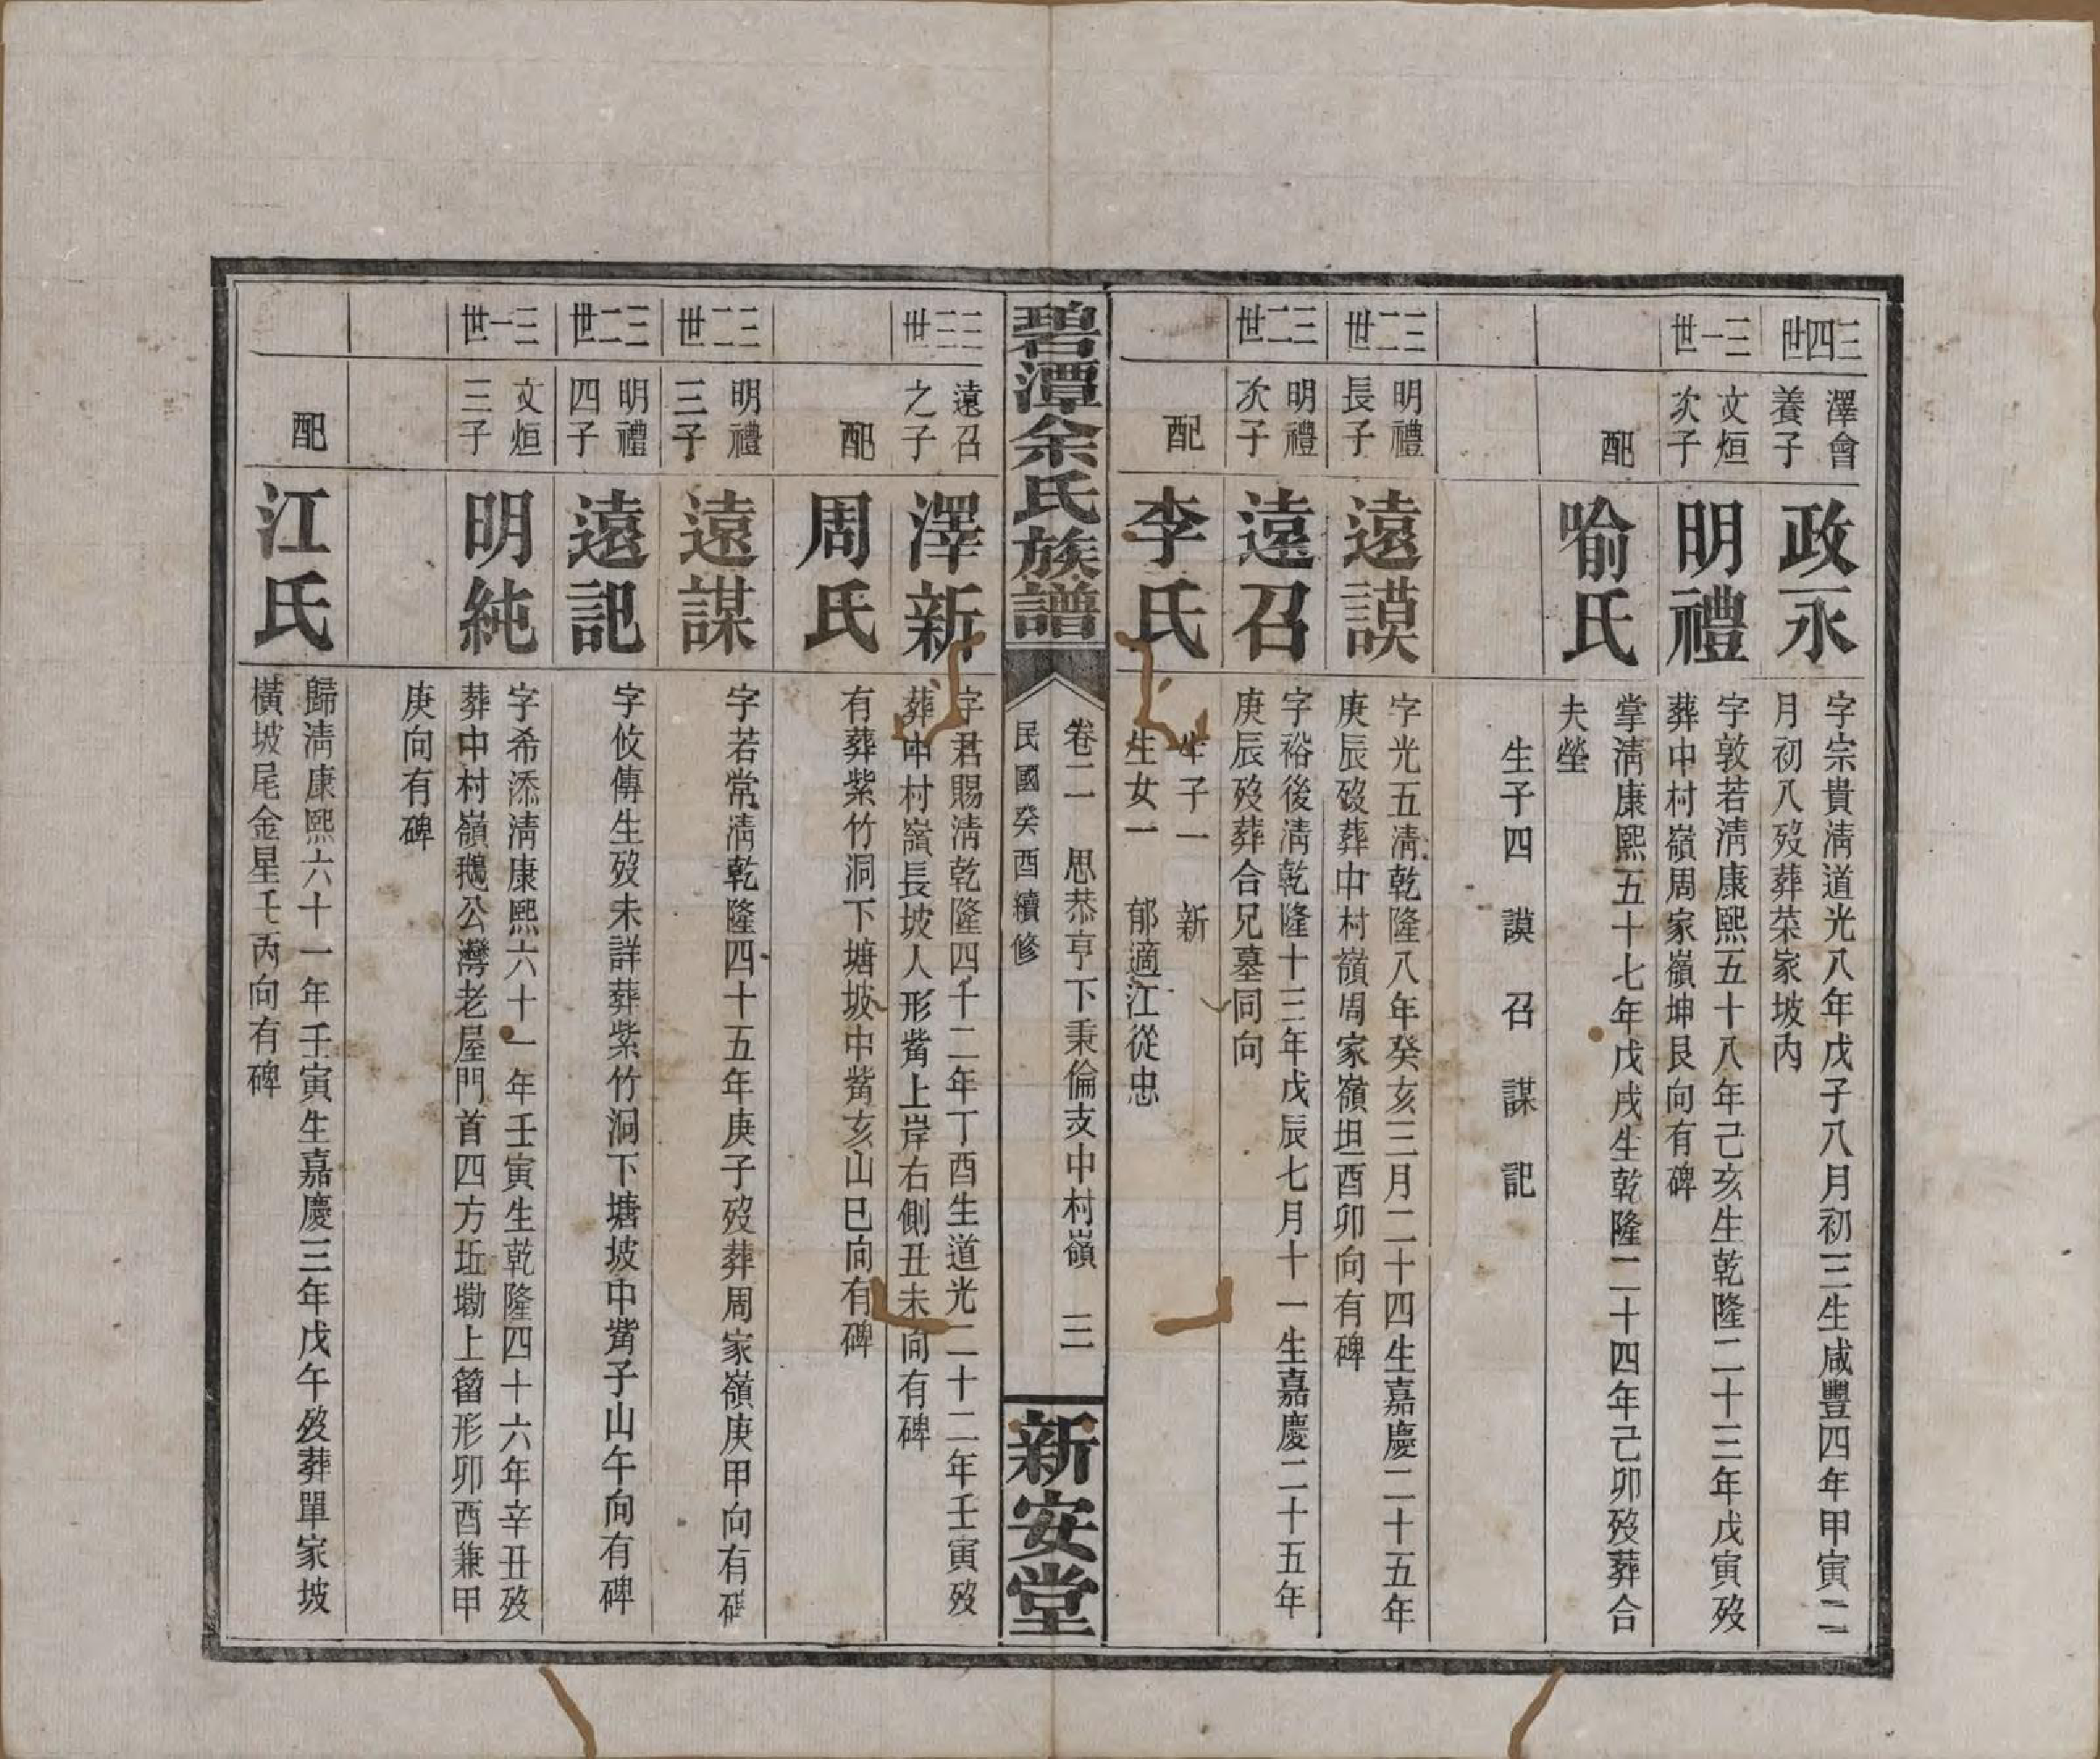 三四世
澤會
養子
政永
字宗貴淸道光八年戊子八月初三生咸豐四年甲寅二
月初八歿葬菜家坡內
三一世
文烜
次子
明禮
字敦若淸康熙五十八年己亥生乾隆二十三年戊寅歿
葬中村嶺周家嶺坤艮向有碑
配
喻氏
掌淸康熙五十七年戊戌生乾隆二十四年己卯歿葬合
夫塋
生子四　謨　召　謀　記
三二世
明禮
長子
遠謨
字光五淸乾隆八年癸亥三月二十四生嘉慶二十五年
庚辰歿葬中村嶺周家嶺坦酉卯向有碑
三二世
明禮
次子
遠召
字裕後淸乾隆十三年戊辰七月十一生嘉慶二十五年
庚辰歿葬合兄墓同向
配
李氏
生子一　新
生女一　郁適江從忠
碧潭余氏族譜
卷二　思恭亨下秉倫支中村嶺　三
民國癸酉續修
新安堂
三三世
遠召
之子
澤新
字君賜淸乾隆四十二年丁酉生道光二十二年壬寅歿
葬中村嶺長坡人形觜上岸右側丑未向有碑
配
周氏
有葬紫竹洞下塘坡中觜亥山巳向有碑
三二世
明禮
三子
遠謀
字若常淸乾隆四十五年庚子歿葬周家嶺庚甲向有碑
三二世
明禮
四子
遠記
字攸傳生歿未詳葬紫竹洞下塘坡中觜子山午向有碑
三一世
文烜
三子
明純
字希添淸康熙六十一年壬寅生乾隆四十六年辛丑歿
葬中村嶺鵝公灣老屋門首四方坵墈上簹形卯酉兼甲
庚向有碑
配
江氏
歸淸康熙六十一年壬寅生嘉慶三年戊午歿葬單家坡
橫坡尾金星壬丙向有碑